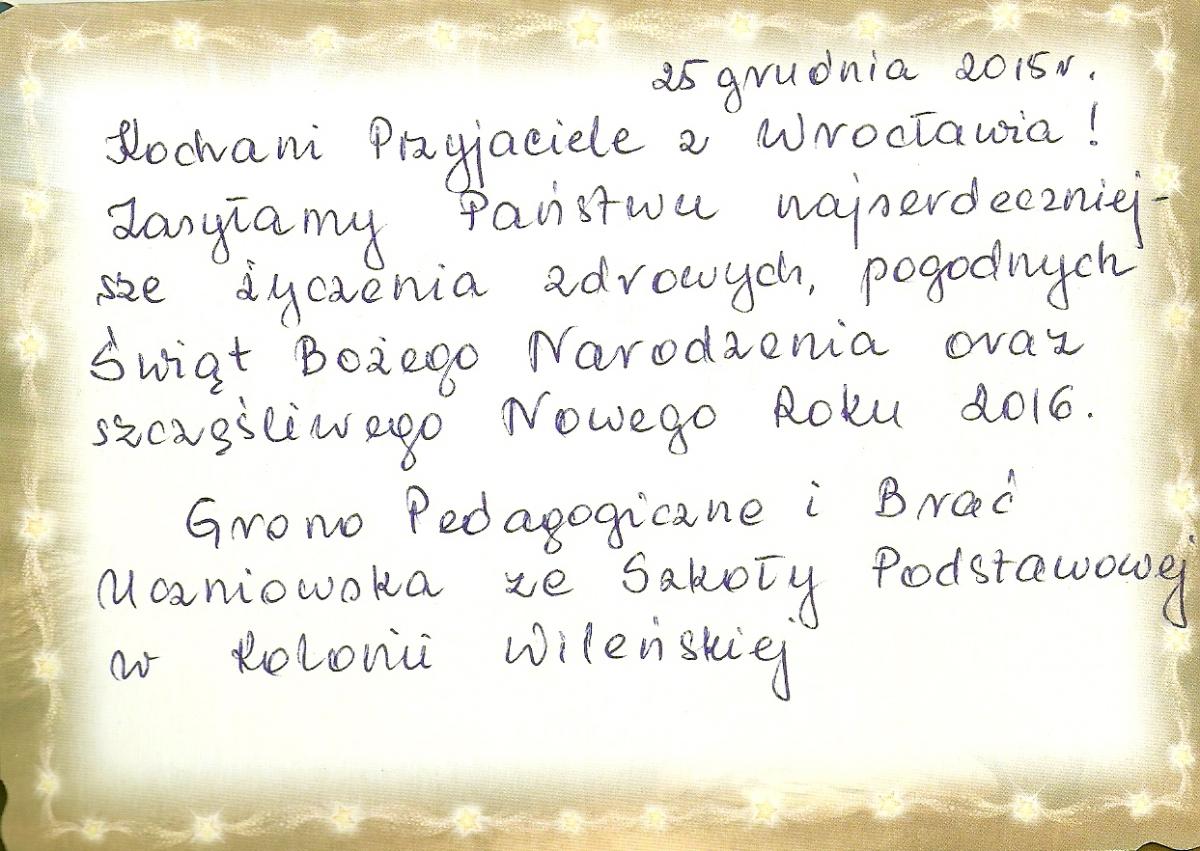 25 grudnia 2015 r.
Kochani Przyjaciele z Wrocławia!
Zasyłamy Państwu najserdeczniej-
sze życzenia zdrowych, pogodnych
Świąt Bożego Narodzenia oraz
szczęśliwego Nowego Roku 2016.
Grono Pedagogiczne i Brać
Uczniowska ze Szkoły Podstawowej
w Kolonii Wileńskiej